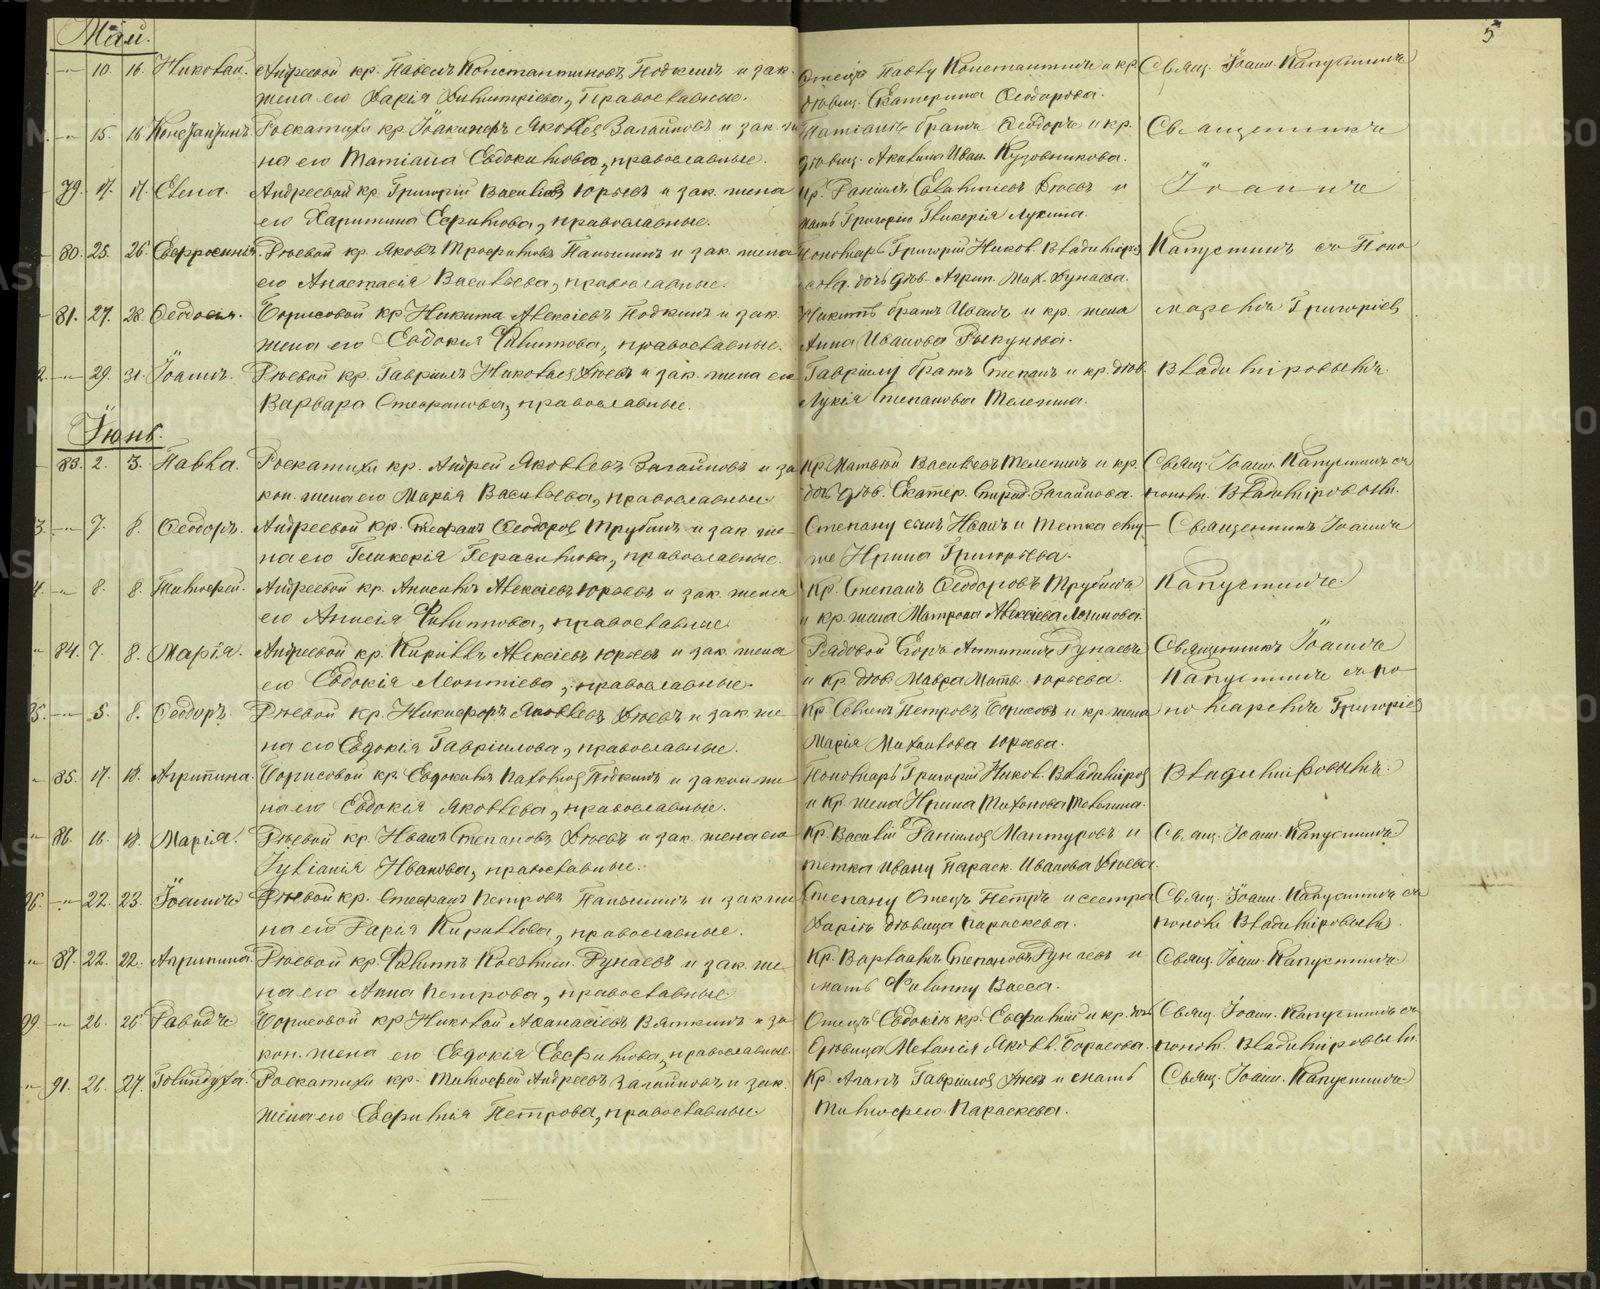 Май.
5
10. 16. Николай. Андреевой кр. Павелъ Константиновъ Подкинъ и зак.
жена его Дарія Димитріева, Православные.
Отецъ Павлу Константинъ и кр.
дѣвиц. Екатерина Ѳеодорова.
Свящ. Іоаннъ Капустинъ
15. 16. Константинъ. Роскатихи кр. Іоакинфъ Яковлев Загайновъ и зак. же
на его Татіана Евдокимова, православные.
братъ Ѳеодоръ и кр.
дѣвиц. Акилина Иван. Кузовникова.
Священникъ
79. 17. 17. Елена. Андреевой кр. Григорій Васильев Юрьевъ и зак. жена
его Харитина Ефимова, православные.
Кр. Даніилъ Дюевъ и
мать Григорію Гликерія Лукина.
Іоаннъ
80. 25. 26. Евфросинія. Дюевой кр. Яковъ Трофимовъ Паньшинъ и зак. жена
его Анастасія Васильева, православные.
Пономарь Григорій Никол. Владиміров
дочь дѣв. Агрип. Мих. Дунаева.
Капустинъ съ Поно
81. 27. 28. Ѳеодосія. Борисовой кр. Никита Алексіевъ Подкинъ и зак.
жена его Евдокія Филиппова, православные.
Никитѣ братъ Иванъ и кр. жена
Анна Иванова Рыкунова.
маремъ Григоріев
29. 31. Іоаннъ. Дюевой кр. Гавріилъ Николаев Дюевъ и зак. жена его
Варвара Стефанова, православные.
Гавріилу братъ Степанъ и кр. дѣв.
Лукія Степанова Телегина.
Владиміровымъ.
Іюнь.
83. 2. 3. Павла. Роскатихи кр. Андрей Яковлевъ Загайновъ и за
кон. жена его Марія Васильева, православные.
Кр. Матвей Васильевъ Телегинъ и кр.
дочь дѣв. Екатер. Спирид. Загайнова.
Свящ. Іоанн. Капустинъ съ
поном. Владиміровым.
7. 8. Ѳеодоръ. Андреевой кр. Стефанъ Ѳеодоров Трубинъ и зак. же
на его Гликерія Герасимова, православные.
Степану сынъ Иванъ и тетка ему
же Ирина Григорьева.
Священникъ Іоаннъ
8. 8. Тимофей. Андреевой кр. Анисимъ Алексіевъ Юрьевъ и зак. жена
его Анисія Филиппова, православные
Кр. Степанъ Ѳеодоровъ Трубинъ
и кр. жена Матрона Алексіева Логинова.
Капустинъ
84. 7. 8. Марія. Андреевой кр. Кириллъ Алексіевъ Юрьевъ и зак. жена
его Евдокія Леонтіева, православные.
Рядовой Егоръ Дунаевъ
и кр. дѣв. Мавра Матв. Юрьева.
Священникъ Іоаннъ
Капустинъ съ по
5. 8. Ѳеодоръ. Дюевой кр. Никифоръ Яковлевъ Дюевъ и зак. же
на его Евдокія Гавріилова, православные.
Кр. Петровъ Борисовъ и кр. жена
Марія Михайлова Юрьева.
номаремъ Григоріев
85. 17. 18. Агрипина. Борисовой кр. Евдокимъ Пахомов Подкинъ и закон. же
на его Евдокія Яковлева, православные.
Пономарь Григорій Никол. Владиміров
и кр. жена Ирина Тихонова Телегина.
Владиміровымъ.
86. 16. 18. Марія. Дюевой кр. Иванъ Степановъ Дюевъ и зак. жена его
Іуліанія Иванова, православные.
Кр. Василій Даніилов Мантуровъ и
тетка Ивану Параск. Иванова Дюева.
Свящ. Іоанн. Капустинъ
22. 23. Іоаннъ. Дюевой кр. Стефанъ Петровъ Паньшинъ и зак. же
на его Дарія Кириллова, православные.
Степану Отецъ Петръ и сестра
Даріи дѣвица Параскева.
Свящ. Іоанн. Капустинъ съ
поном. Владиміровым.
87. 22. 22. Агрипина. Дюевой кр. Филиппъ Козьмин. Дунаевъ и зак. же
на его Анна Петрова, православные
Кр. Варлаамъ Степановъ Дунаевъ и
мать Филиппу Васса.
Свящ. Іоанн. Капустинъ
26. 26. Давидъ. Борисовой кр. Николай Аѳанасіевъ Вяткинъ и за
кон. жена его Евдокія Евфимова, православные.
Отецъ Евдокіи кр. Евфимій и кр. дочь
дѣвица Меланія Яковл. Борисова.
Свящ. Іоанн. Капустинъ съ
поном. Владиміровым.
91. 21. 27. Голиндуха. Роскатихи кр. Тимофей Андреевъ Загайновъ и зак.
жена его Евфимія Петрова, православные
Кр. Агапъ Гавріилов Дюевъ и мать
Тимофею Параскева.
Свящ. Іоанн. Капустинъ
METRIKI.GASO-URAL.RU